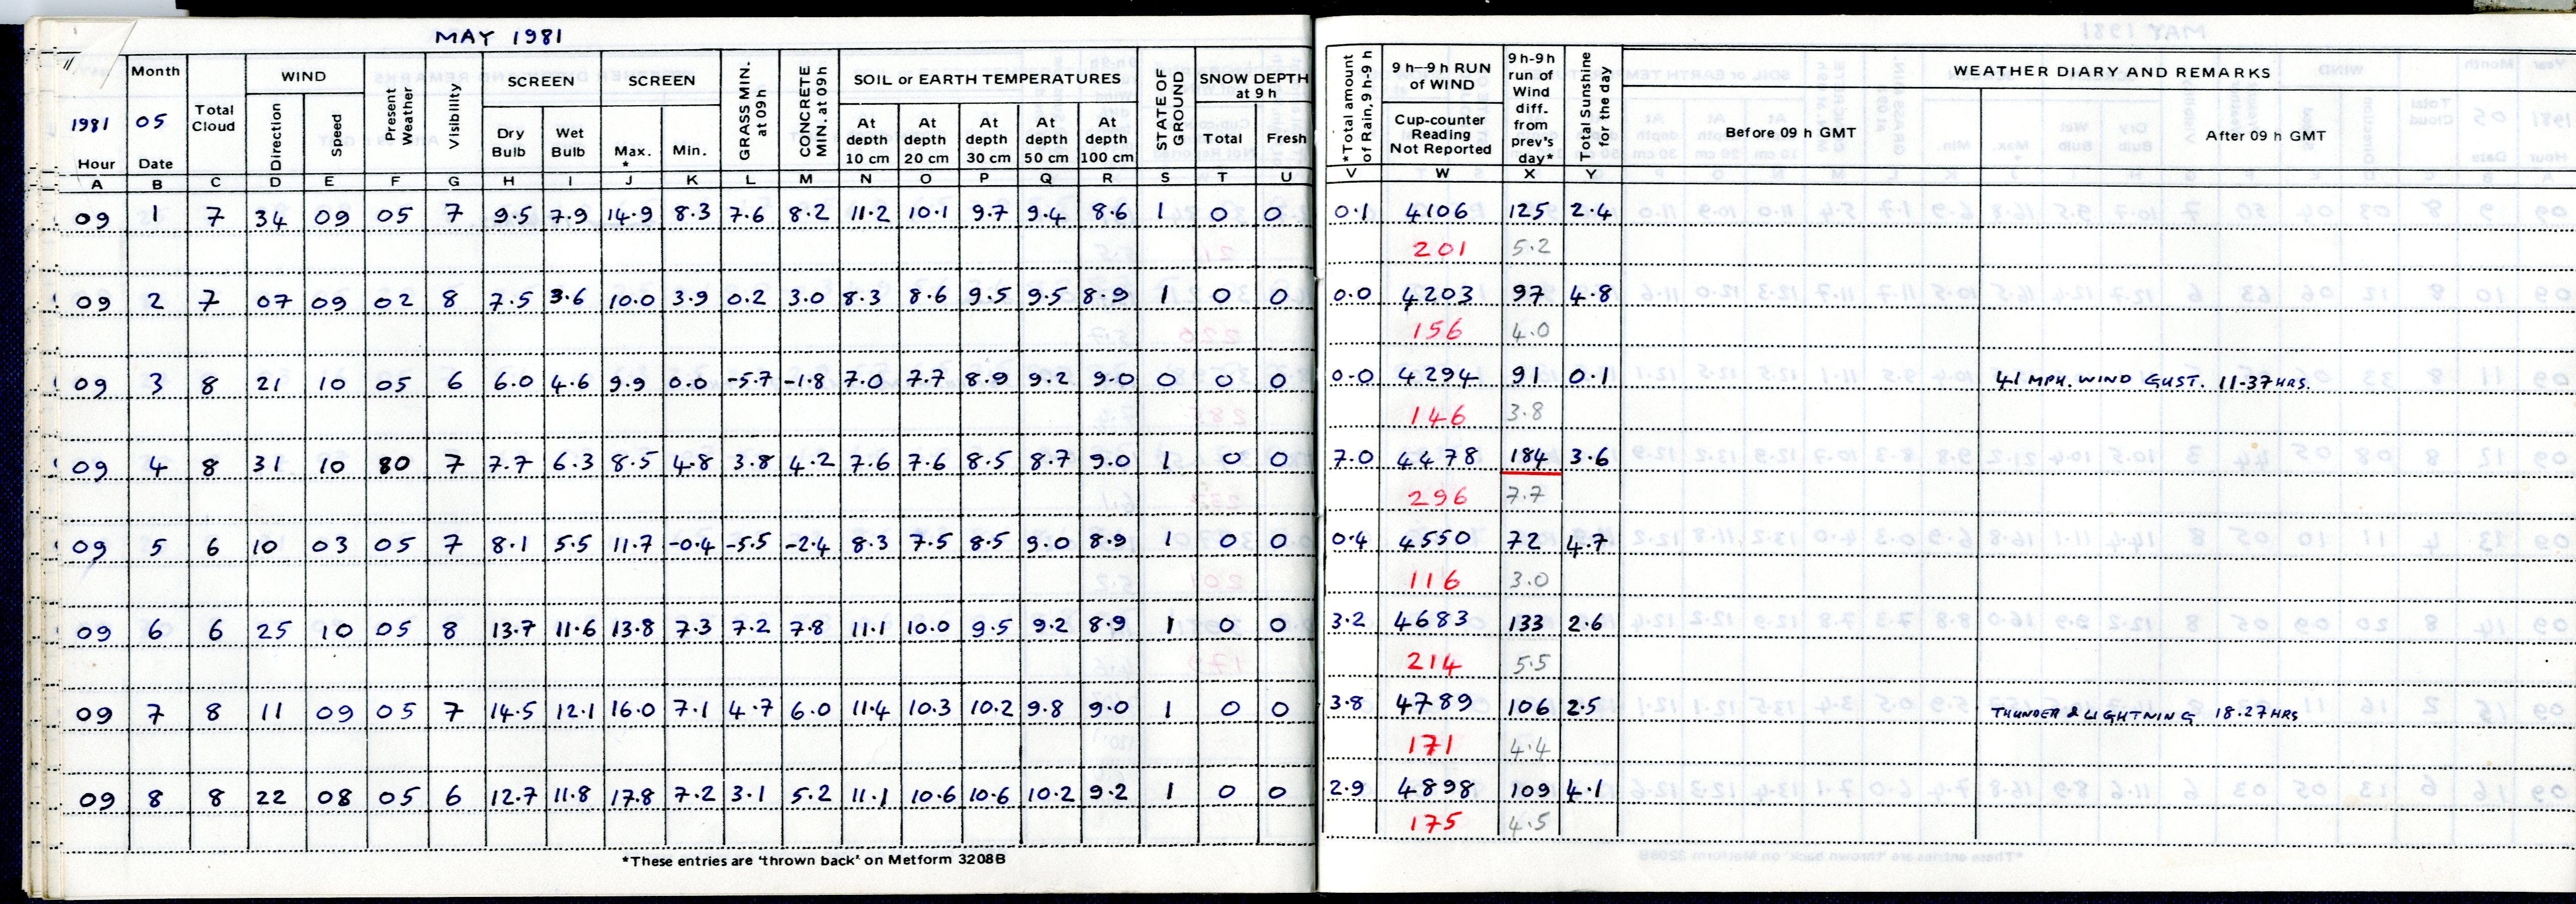 MAY 1981
Month WIND SCREEN SCREEN SOIL or EARTH TEMPERATURES SNOW DEPTH at 9 h
1981 05 Total Cloud Direction Speed Present Weather Visibility Dry Bulb Wet Bulb Max. * Min. GRASS MIN. at 09h CONCRETE MIN. at 09h At depth 10 cm At depth 20 cm At depth 30 cm At depth 50 cm At depth 100 cm STATE OF GROUND Total Fresh
Hour Date
A B C D E F G H I J K L M N O P Q R S T U
09 1 7 34 09 05 7 9.5 7.9 14.9 8.3 7.6 8.2 11.2 10.1 9.7 9.4 8.6 1 0 0
09 2 7 07 09 02 8 7.5 3.6 10.0 3.9 0.2 3.0 8.3 8.6 9.5 9.5 8.9 1 0 0
09 3 8 21 10 05 6 6.0 4.6 9.9 0.0 -5.7 -1.8 7.0 7.7 8.9 9.2 9.0 0 0 0
09 4 8 31 10 80 7 7.7 6.3 8.5 4.8 3.8 4.2 7.6 7.6 8.5 8.7 9.0 1 0 0
09 5 6 10 03 05 7 8.1 5.5 11.7 -0.4 -5.5 -2.4 8.3 7.5 8.5 9.0 8.9 1 0 0
09 6 6 25 10 05 8 13.7 11.6 13.8 7.3 7.2 7.8 11.1 10.0 9.5 9.2 8.9 1 0 0
09 7 8 11 09 05 7 14.5 12.1 16.0 7.1 4.7 6.0 11.4 10.3 10.2 9.8 9.0 1 0 0
09 8 8 22 08 05 6 12.7 11.8 17.8 7.2 3.1 5.2 11.1 10.6 10.6 10.2 9.2 1 0 0
*These entries are 'thrown back' on Metform 3208B
*Total amount of Rain, 9 h-9 h 9 h—9 h RUN of WIND 9 h-9 h run of Wind diff. from prev's day* Total Sunshine for the day WEATHER DIARY AND REMARKS
Cup-counter Reading Not Reported Before 09 h GMT After 09 h GMT
V W X Y
0.1 4106 125 2.4
201 5.2
0.0 4203 97 4.8
156 4.0
0.0 4294 91 0.1 41 MPH. WIND GUST. 11-37 HRS.
146 3.8
7.0 4478 184 3.6
296 7.7
0.4 4550 72 4.7
116 3.0
3.2 4683 133 2.6
214 5.5
3.8 4789 106 2.5 THUNDER & LIGHTNING 18.27 HRS
171 4.4
2.9 4898 109 4.1
175 4.5